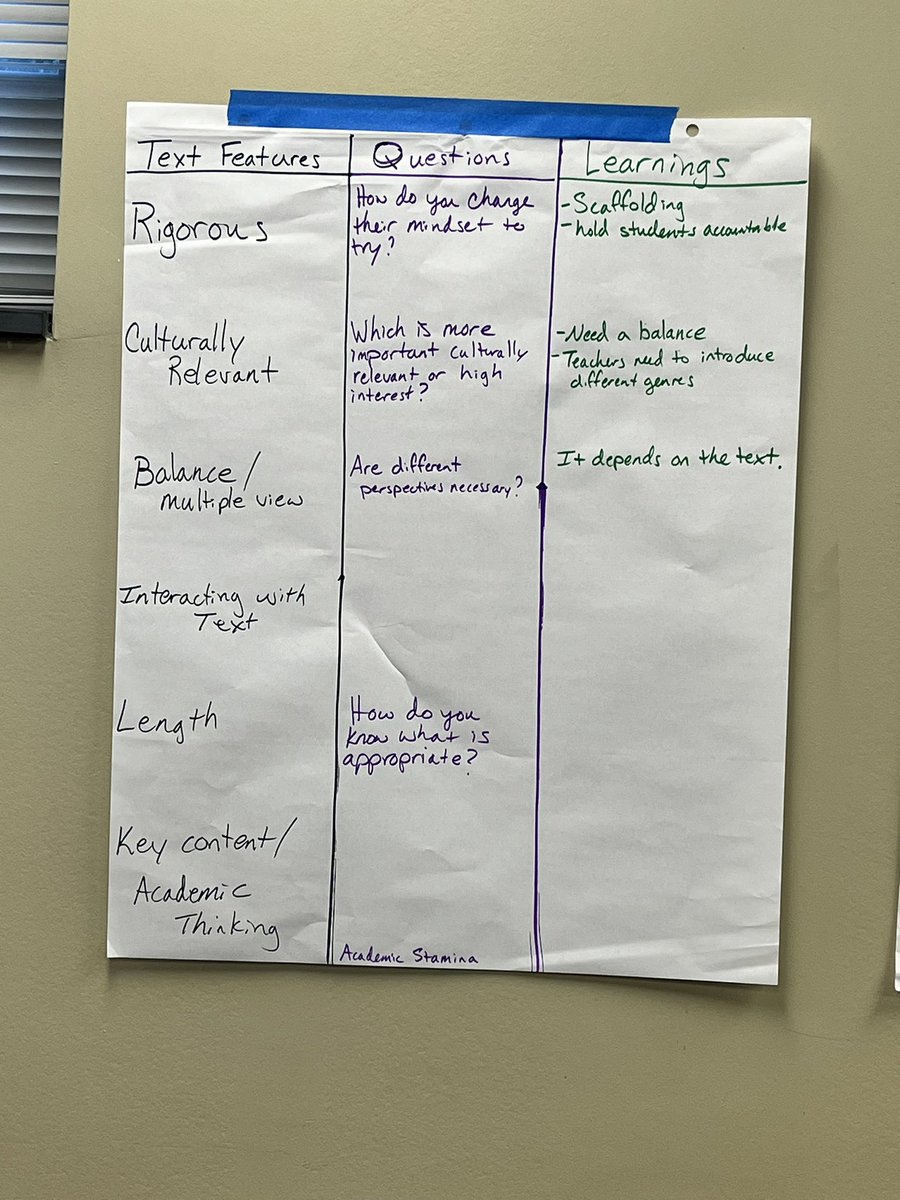 Text Features
Questions
Learnings
Rigorous
How do you change
their mindset to
try?
-Scaffolding
-hold students accountable
Culturally
Relevant
Which is more
important culturally
relevant or high
interest?
-Need a balance
-Teachers need to introduce
different genres
Balance/
multiple view
Are different
perspectives necessary?
It depends on the text.
Interacting with
Text
Length
How do you
know what is
appropriate?
Key content/
Academic
Thinking
Academic Stamina